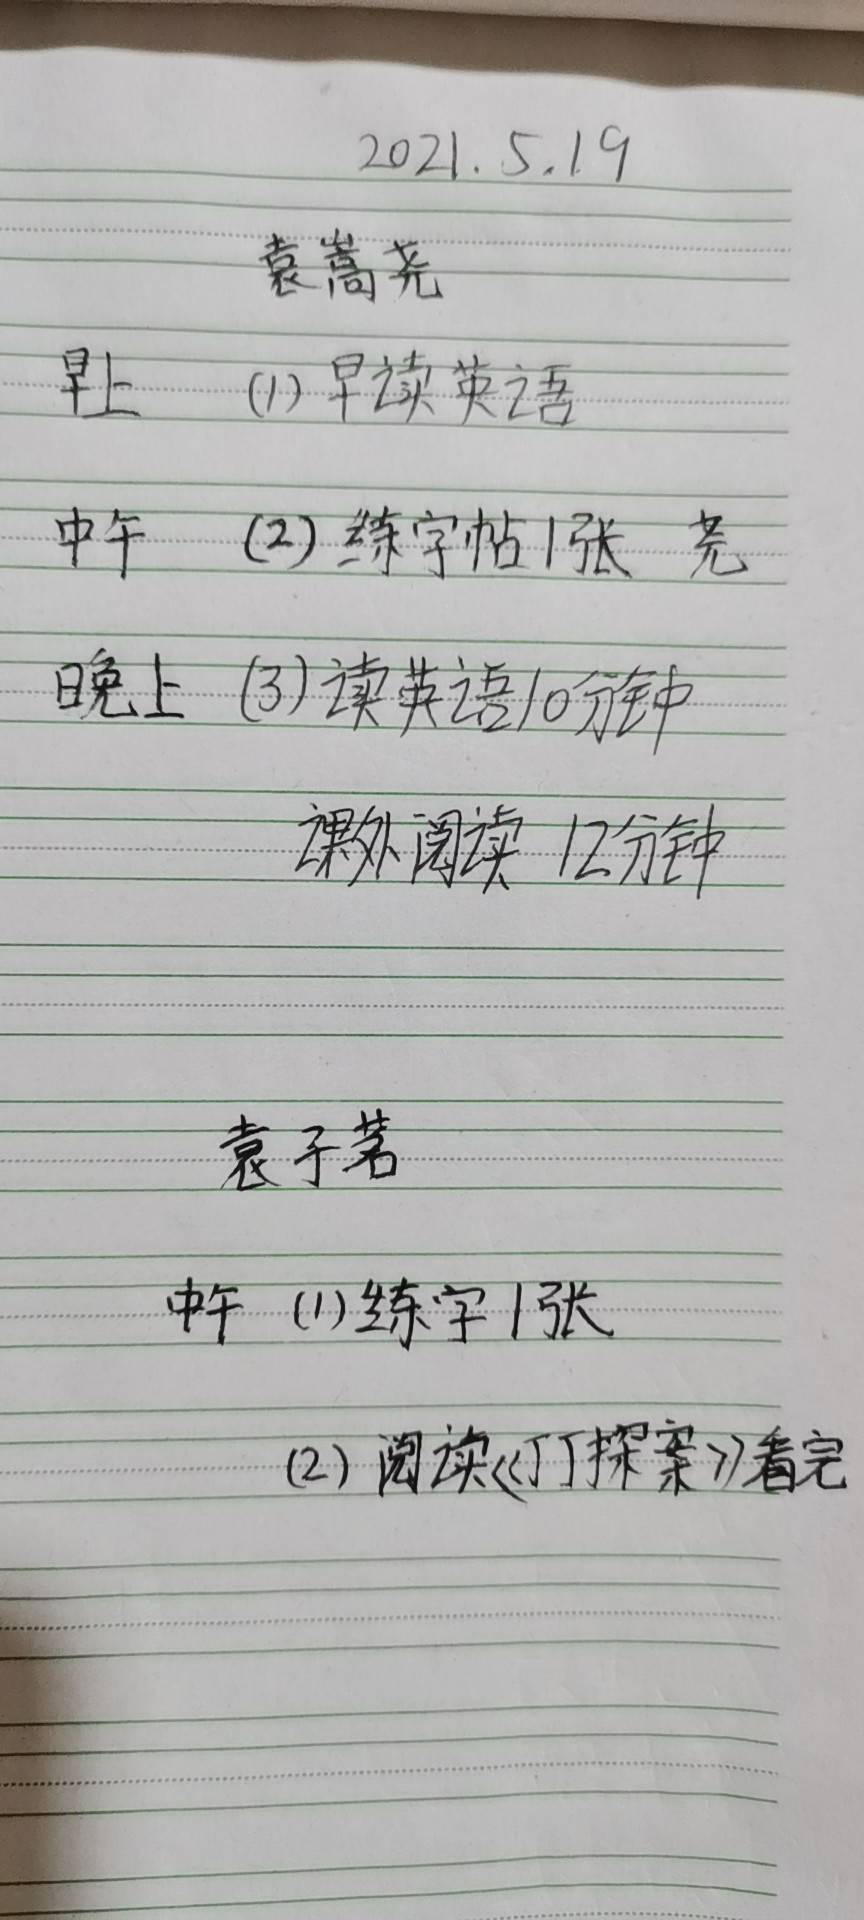 2021.5.19
袁嵩尧
早上 (1) 早读英语
中午 (2) 练字帖1张 尧
晚上 (3) 读英语10分钟
课外阅读 12分钟
袁子茗
中午 (1) 练字1张
(2) 阅读《丁丁探案》看完